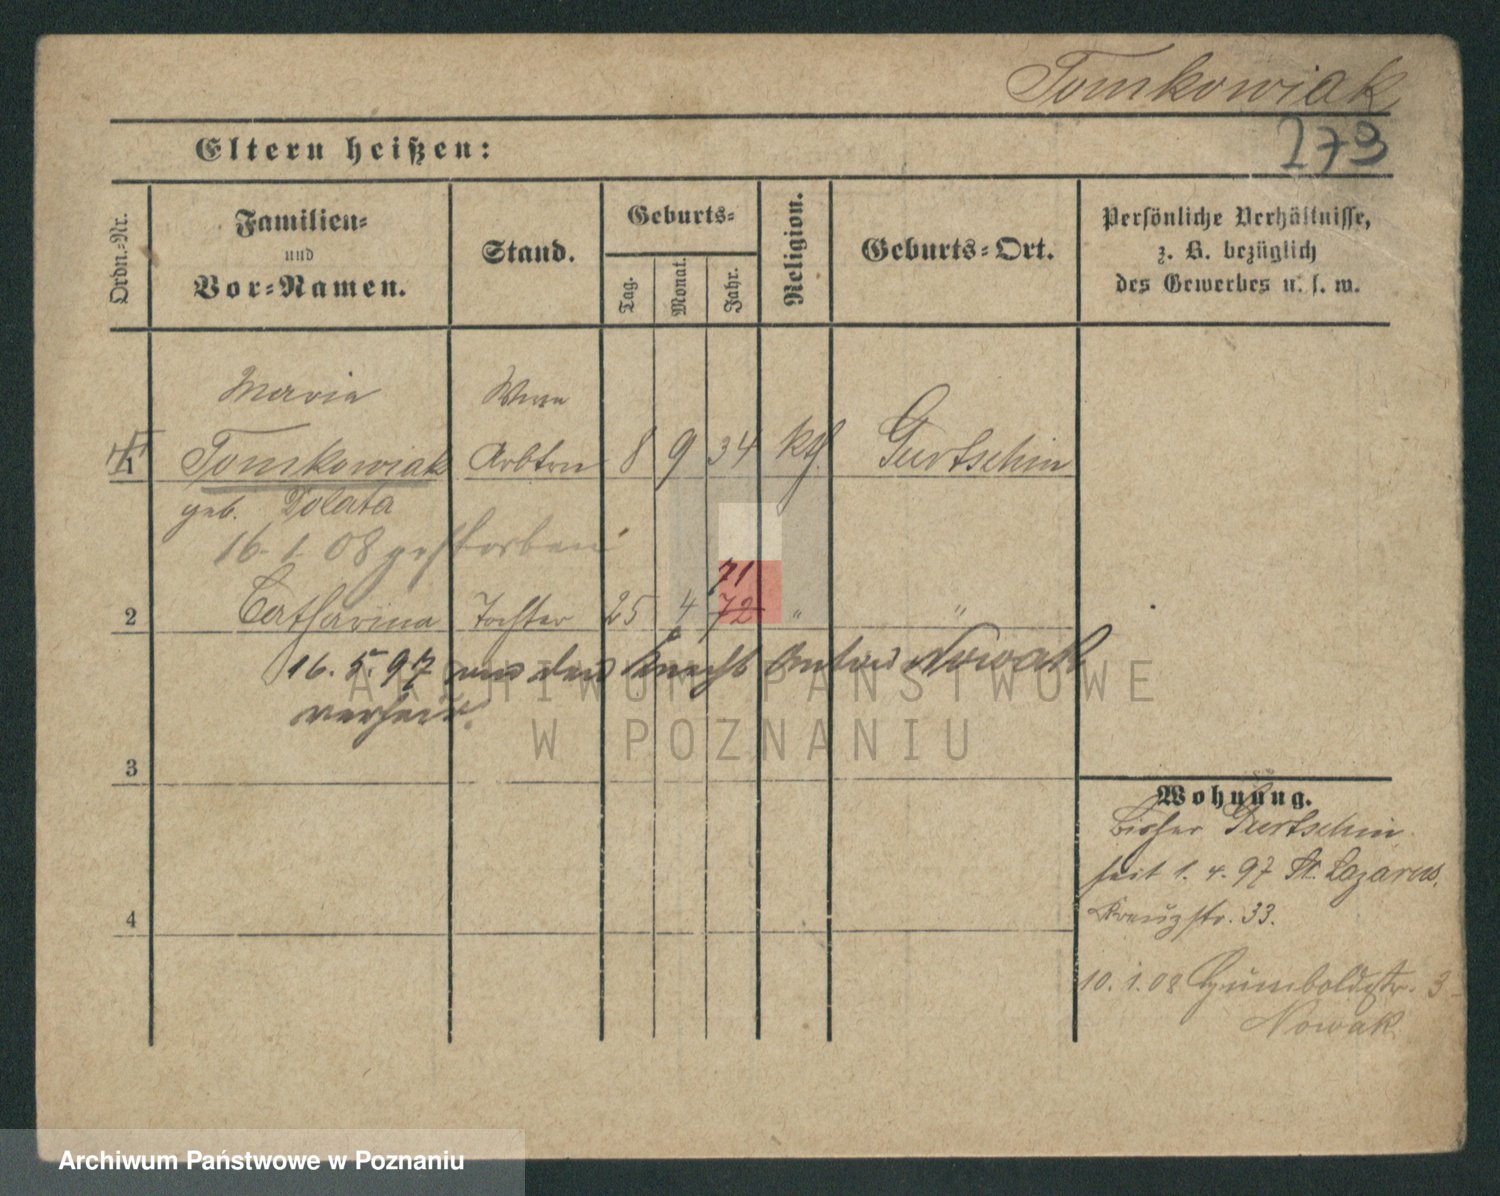 Tomkowiak
273
Eltern heißen:
Ordn.-Nr.
Familien-
und
Vor-Namen.
Stand.
Geburts-
Tag.
Monat.
Jahr.
Religion.
Geburts-Ort.
Persönliche Verhältnisse,
z. B. bezüglich
des Gewerbes u. s. w.
Maria
1 Tomkowiak Arbtrn 8 9 34 kth. Gurtschin
geb. Dolata
16. 1. 08 gestorben
71
2 Catharina Tochter 25 4 72 " "
16. 5. 97 den Knecht Anton Nowak
verheir.
3
4
Wohnung.
bisher Gurtschin.
seit 1. 4. 97 St. Lazarus,
Kreuzstr. 33.
10. 1. 08 Humboldstr. 3
Nowak
ARCHIWUM PAŃSTWOWE
W POZNANIU
Archiwum Państwowe w Poznaniu